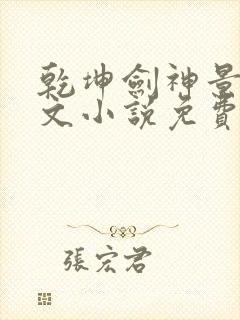 乾坤劍神景
文小說免費
張宏君